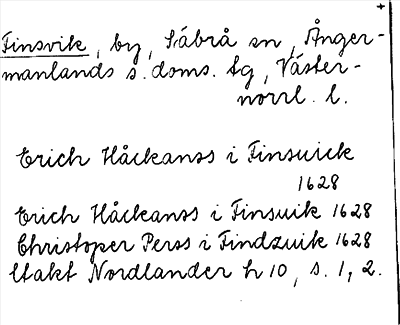 Finsvik, by, Säbrå sn, Ånger-
manlands s. doms. tg, Väster-
norrl. l.
Erich Håckanss i Finsuick
1628
Erich Håckanss i Finsuik 1628
Christoper Perss i Findzuik 1628
Utakt Nordlander h 10, s. 1, 2.